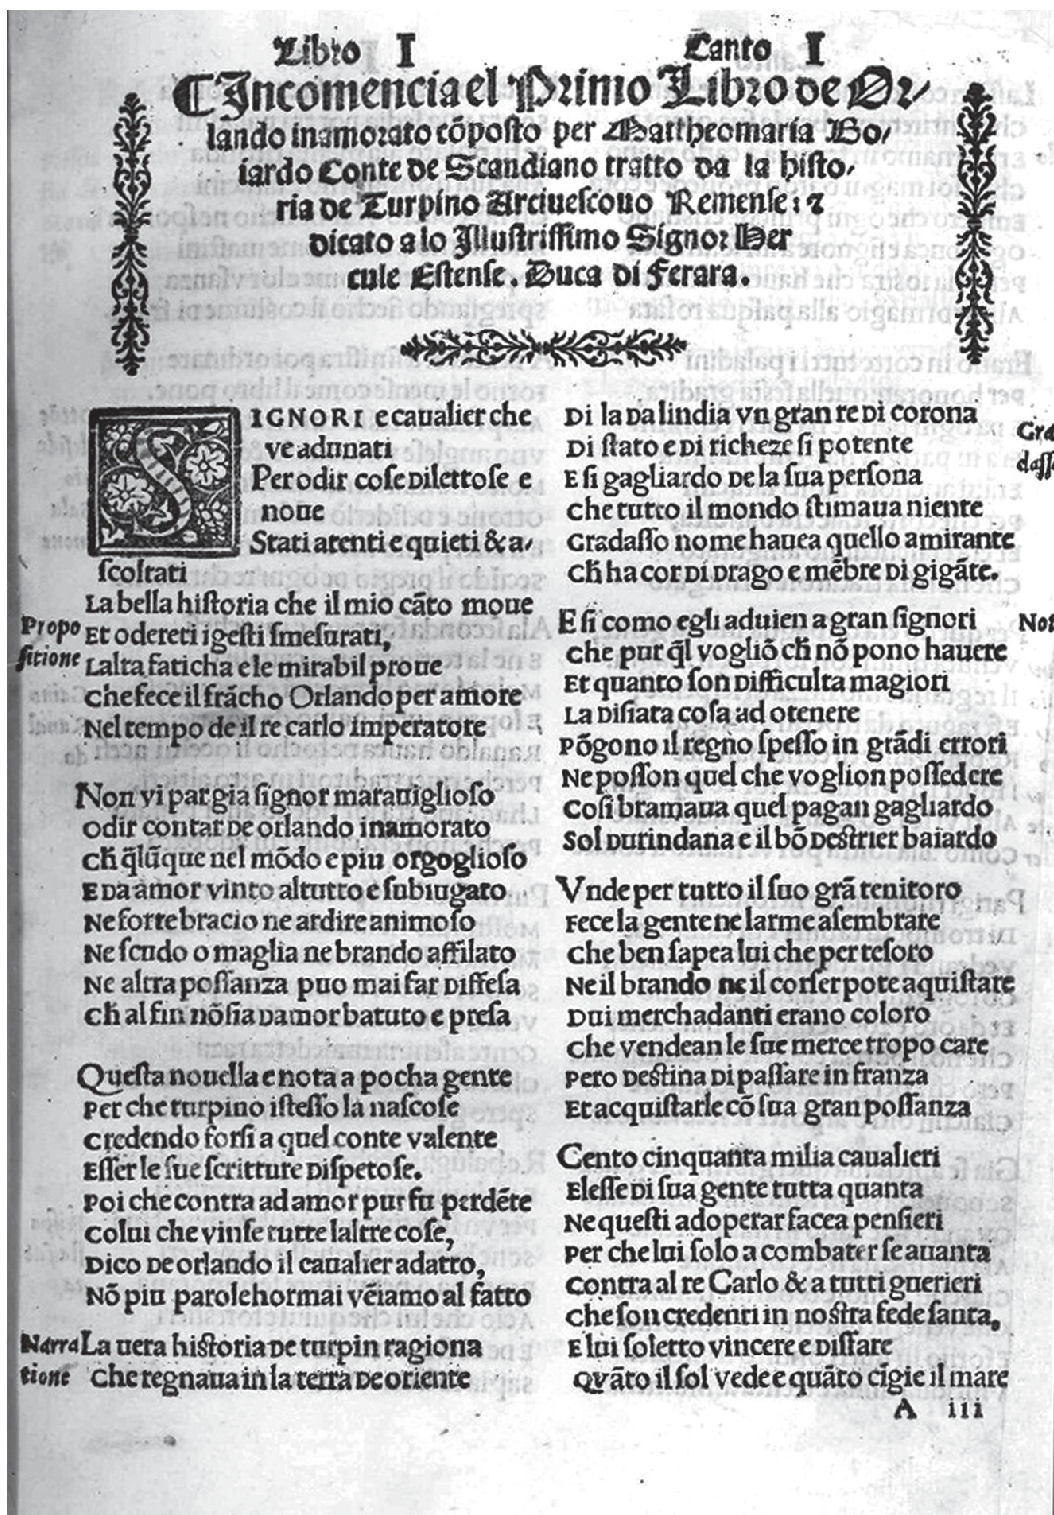 Libro I Canto I
¶ Incomencia el Primo Libro de Or/
lando inamorato cōposto per Mattheomaria Bo/
iardo Conte de Scandiano tratto da la histo/
ria de Turpino Arciuescouo Remense: ⁊
dicato a lo Illustrissimo Signor Her
cule Estense. Duca di Ferara.
SIGNORI e caualier che
ve adunati
Per odir cose dilettose e
noue
Stati atenti e quieti & a/
scoltati
La bella historia che il mio cāto moue
Propo
sitione
Et odereti i gesti smesurati,
Lalta faticha e le mirabil proue
che fece il frācho Orlando per amore
Nel tempo de il re carlo Imperatore
Non vi pargia signor marauiglioso
odir contar de orlando inamorato
Ch̄ q̄lūque nel mōdo e piu orgoglioso
E da amor vinto al tutto e subiugato
Ne forte bracio ne ardire animoso
Ne scudo o maglia ne brando affilato
Ne altra possanza puo mai far diffesa
Ch̄ al fin nō sia damor batuto e presa
Questa nouella e nota a pocha gente
Per che turpino istesso la nascose
credendo forsi a quel conte valente
Esser le sue scritture dispetose.
Poi che contra ad amor pur fu perdēte
colui che vinse tutte laltre cose,
Dico de orlando il caualier adatto,
Nō piu parole hormai vēiamo al fatto
Narra
tione
La uera historia de turpin ragiona
Che regnaua in la terra de oriente
Di la da lindia vn gran re di corona
Gra
dass
Di stato e di richeze si potente
E si gagliardo de la sua persona
che tutto il mondo stimaua niente
Gradasso nome hauea quello amirante
Ch̄ ha cor di drago e mēbre di gigāte.
E si como egli aduien a gran signori
Not
che pur q̄l vogliō ch̄ nō pono hauere
Et quanto son difficulta magiori
La disiata cosa ad otenere
Pōgono il regno spesso in grādi errori
Ne posson quel che voglion possedere
Cosi bramaua quel pagan gagliardo
Sol durindana e il bō destrier baiardo
Vnde per tutto il suo grā tenitoro
Fece la gente ne larme asembrare
che ben sapea lui che per tesoro
Ne il brando ne il corser pote aquistare
Dui merchadanti erano coloro
che vendean le sue merce tropo care
Pero destina di passare in franza
Et acquistarle cō sua gran possanza
Cento cinquanta milia caualieri
Elesse di sua gente tutta quanta
Ne questi adoperar facea pensieri
Per che lui solo a combater se auanta
contra al re Carlo & a tutti guerieri
che son credenti in nostra fede santa,
E lui soletto vincere e disfare
Quāto il sol vede e quāto cīgie il mare
A iii